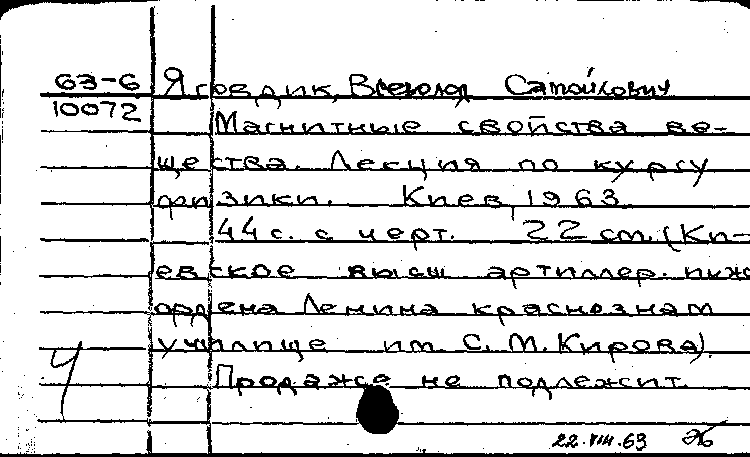 63-6 Яговдик, Всеволод Самойлович
10072
Магнитные свойства ве-
щества. Лекция по курсу
физики. Киев, 1963.
44 с. с черт. 22 см. (Ки-
евское высш артиллер. инж
ордена Ленина краснознам
училище им. С. М. Кирова).
Продаже не подлежит.
Ч
22.VIII.63